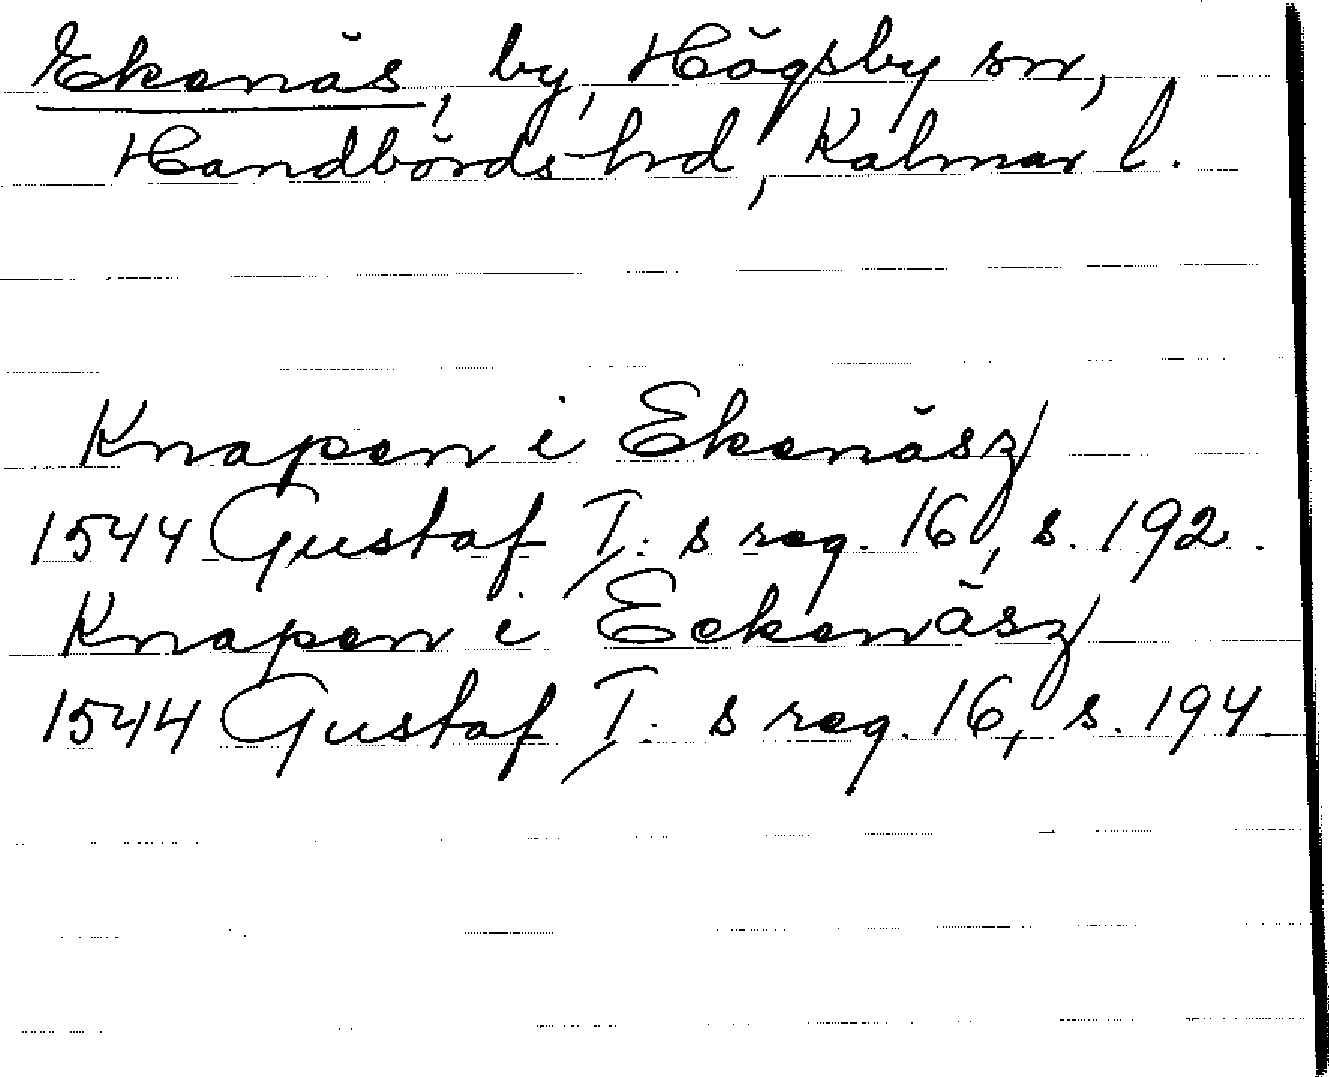 Ekenäs, by, Högsby sn,
Handbörds hrd, Kalmar l.
Knapen i Ekenäsz
1544 Gustaf I: s reg. 16, s. 192.
Knapen i Eckenäsz
1544 Gustaf I: s reg. 16, s. 194